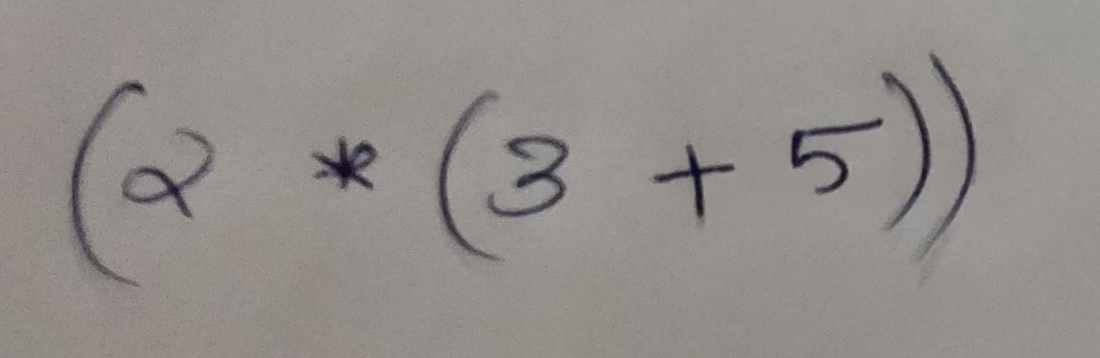 (2 * (3 + 5))